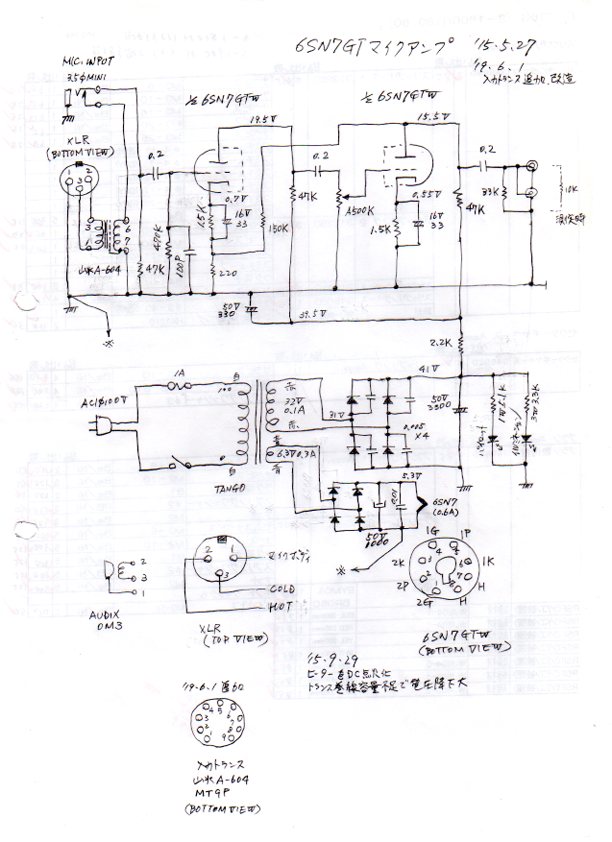 6SN7GTマイクアンプ '15.5.27
'19.6.1
入力トランス追加、改造
MIC INPOT
3.5φMINI
½ 6SN7GTW
½ 6SN7GTW
XLR
(BOTTOM VIEW)
19.5V
15.5V
0.2
0.2
0.2
1
2
3
0.7V
0.55V
1.5K
16V
33
150K
47K
A500K
1.5K
16V
33
47K
33K
10K
3
5
6
7
山水A-604
47K
470K
100P
220
50V
330
39.5V
※
2.2K
41V
AC1φ100V
1A
白
100
0
白
TANGO
赤
32V
0.1A
赤
青
6.3V0.3A
青
31V
0.005
×4
50V
3300
パイロット
イルミネーション
3W 3.3K
5.3V
50V
1000
6SN7
(0.6A)
※
1G
1P
2K
1K
2P
H
2G
H
6SN7GTW
(BOTTOM VIEW)
AUDIX
OM3
2
3
1
2
1
3
マイクボディ
COLD
HOT
XLR
(TOP VIEW)
'15.9.29
ヒーターをDC点火化
トランス巻線容量不足で電圧降下大
'19.6.1 追加
入力トランス
山水A-604
MT9P
(BOTTOM VIEW)